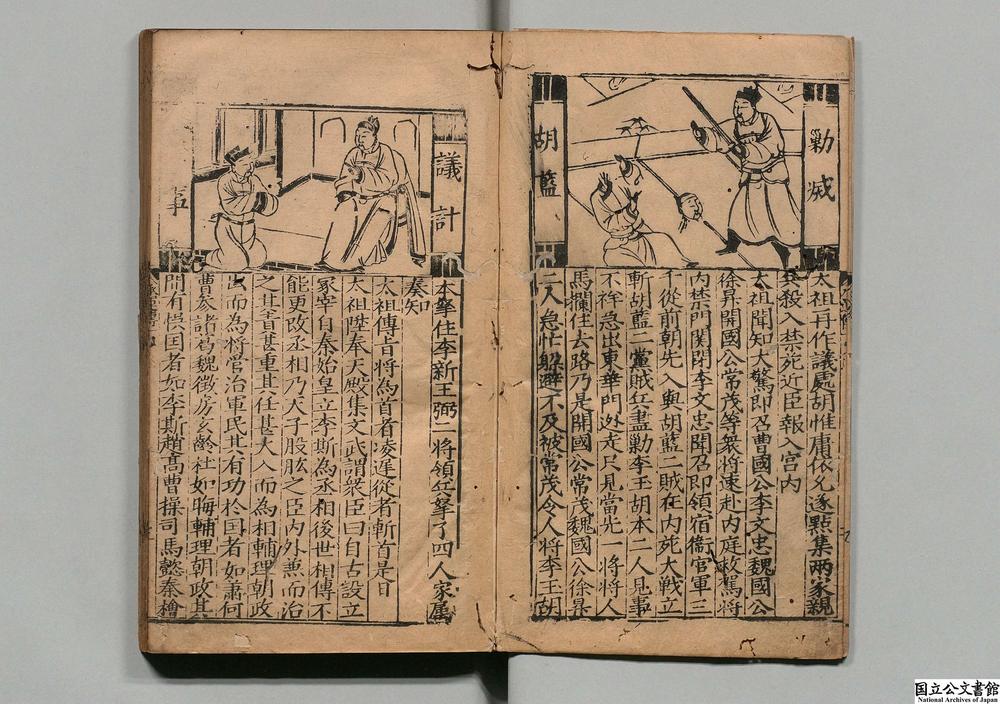 勦滅
胡藍
太祖再作議處胡惟庸依允遂點集兩家親
兵殺入禁死近臣報入宮内
太祖聞知大驚即召曹國公李文忠魏國公
徐昇開國公常茂等衆將速赴内庭救駕將
内禁門関閉李文忠聞召即領宿衞官軍三
千從前朝先入與胡藍二賊在内死大戰立
斬胡藍二黨賊兵盡勦李王胡本二人見事
不祥急出東華門逊走只見當先一將將人
馬攔住去路乃是開國公常茂魏國公徐昇
二人急忙躲避不及被常茂令人將李王胡
議計
事
本拏住李新王弼二將領兵拏了四人家属
奏知
太祖傳旨將為首者凌遲從者斬首是日
太祖陞奉天殿集文武謂衆臣曰自古設立
冢宰自秦始皇立李斯為丞相後世相傳不
能更改丞相乃天子股肱之臣内外兼而治
之其責甚重其任甚大入而為相輔理朝政
出而為將管治軍民其有功於国者如蕭何
曹参諸葛魏徵房玄齡杜如晦輔理朝政其
間有悞国者如李斯趙高曹操司馬懿秦檜
国立公文書館
National Archives of Japan